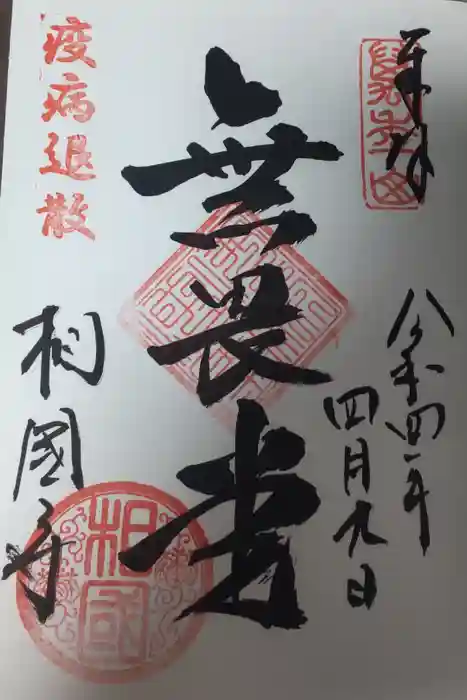 奉拝
令和四年
四月九日
無畏堂
疫病退散
相國寺
相國